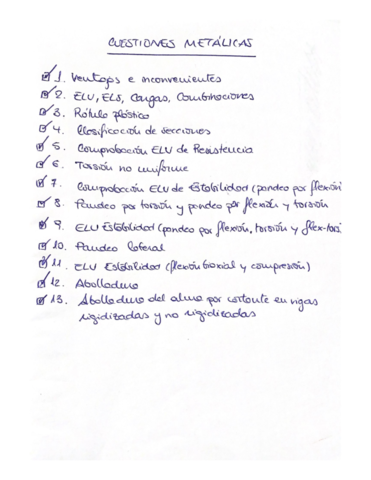 CUESTIONES METÁLICAS
1. Ventajas e inconvenientes
2. ELU, ELS, Cargas, Combinaciones
3. Rótula plástica
4. Clasificación de secciones
5. Comprobación ELU de Resistencia
6. Torsión no uniforme
7. Comprobación ELU de Estabilidad (pandeo por flexión
8. Pandeo por torsión y pandeo por flexión y torsión
9. ELU Estabilidad (pandeo por flexión, torsión y flex-torsi
10. Pandeo lateral
11. ELU Estabilidad (flexión biaxial y compresión)
12. Abolladura
13. Abolladura del alma por cortante en vigas
rigidizadas y no rigidizadas